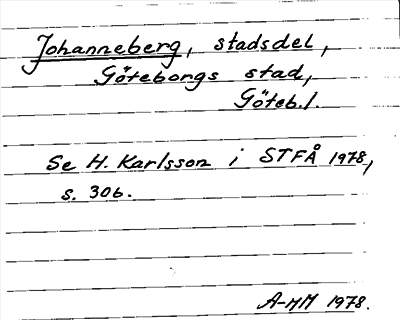 Johanneberg, stadsdel,
Göteborgs stad,
Göteb. l.
Se H. Karlsson i STFÅ 1978,
s. 306.
A-MM 1978.